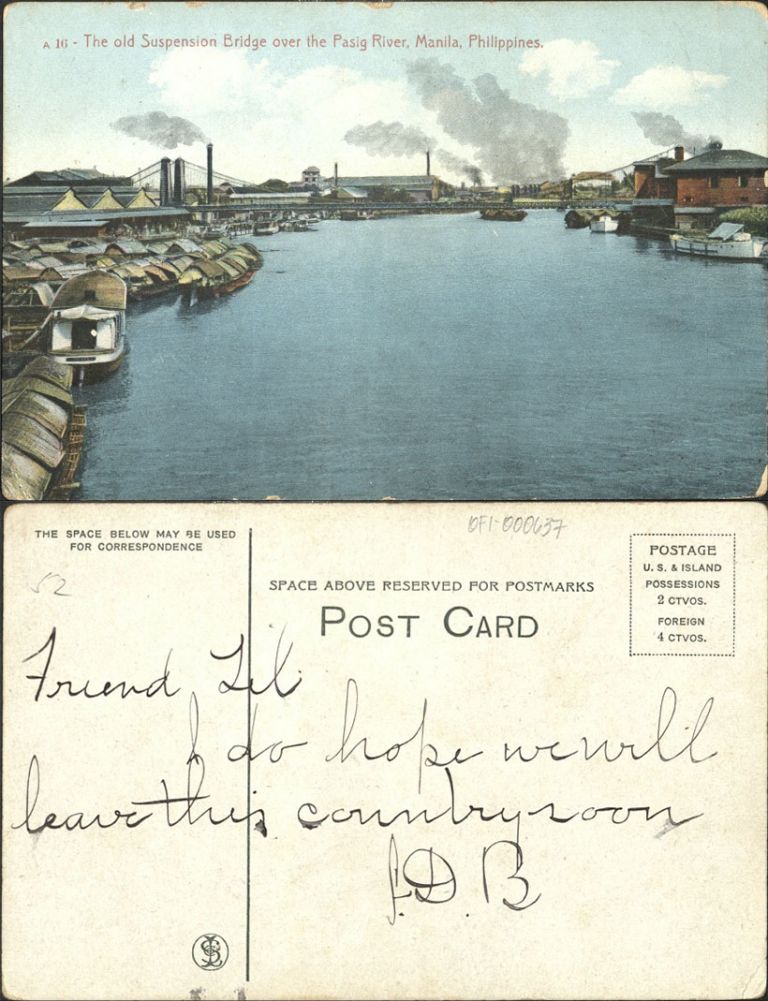 A 16 - The old Suspension Bridge over the Pasig River, Manila, Philippines.
THE SPACE BELOW MAY BE USED
FOR CORRESPONDENCE
DFI-000637
52
SPACE ABOVE RESERVED FOR POSTMARKS
POST CARD
POSTAGE
U. S. & ISLAND
POSSESSIONS
2 CTVOS.
FOREIGN
4 CTVOS.
Friend Lil
I do hope we will
leave this country soon
J.D.B